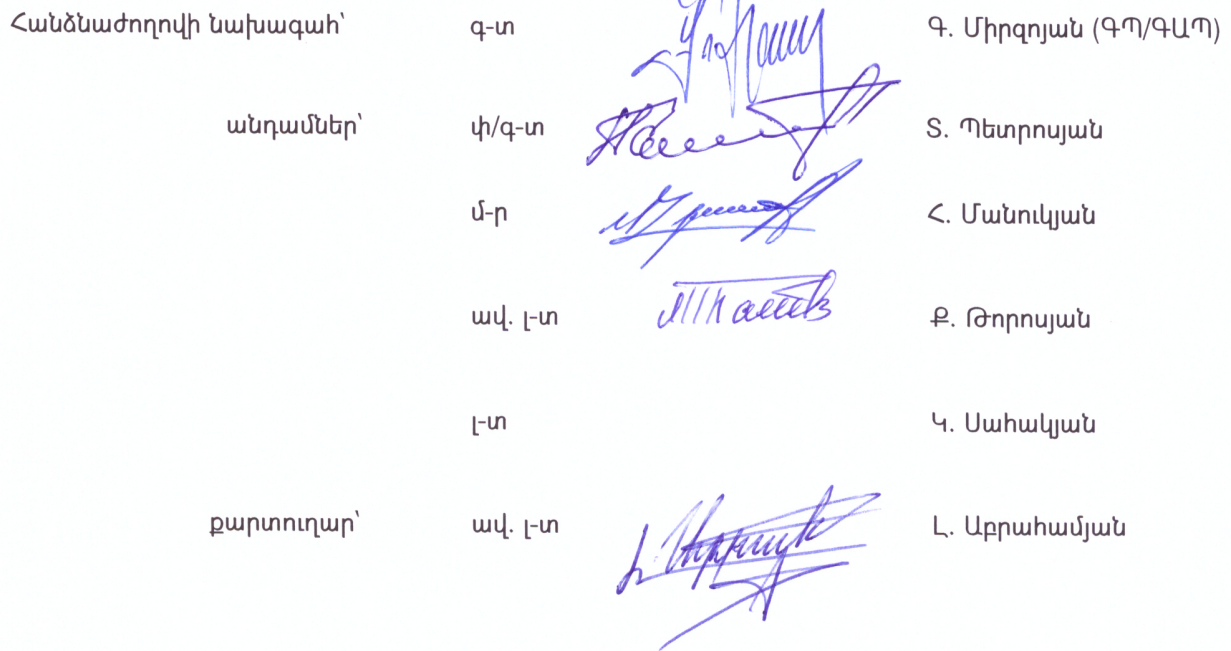 Հանձնաժողովի նախագահ՝ գ-տ Գ. Միրզոյան (ԳՊ/ԳԱՊ)
անդամներ՝ փ/գ-տ Տ. Պետրոսյան
մ-ր Հ. Մանուկյան
ավ. լ-տ Ք. Թորոսյան
լ-տ Կ. Սահակյան
քարտուղար՝ ավ. լ-տ Լ. Աբրահամյան